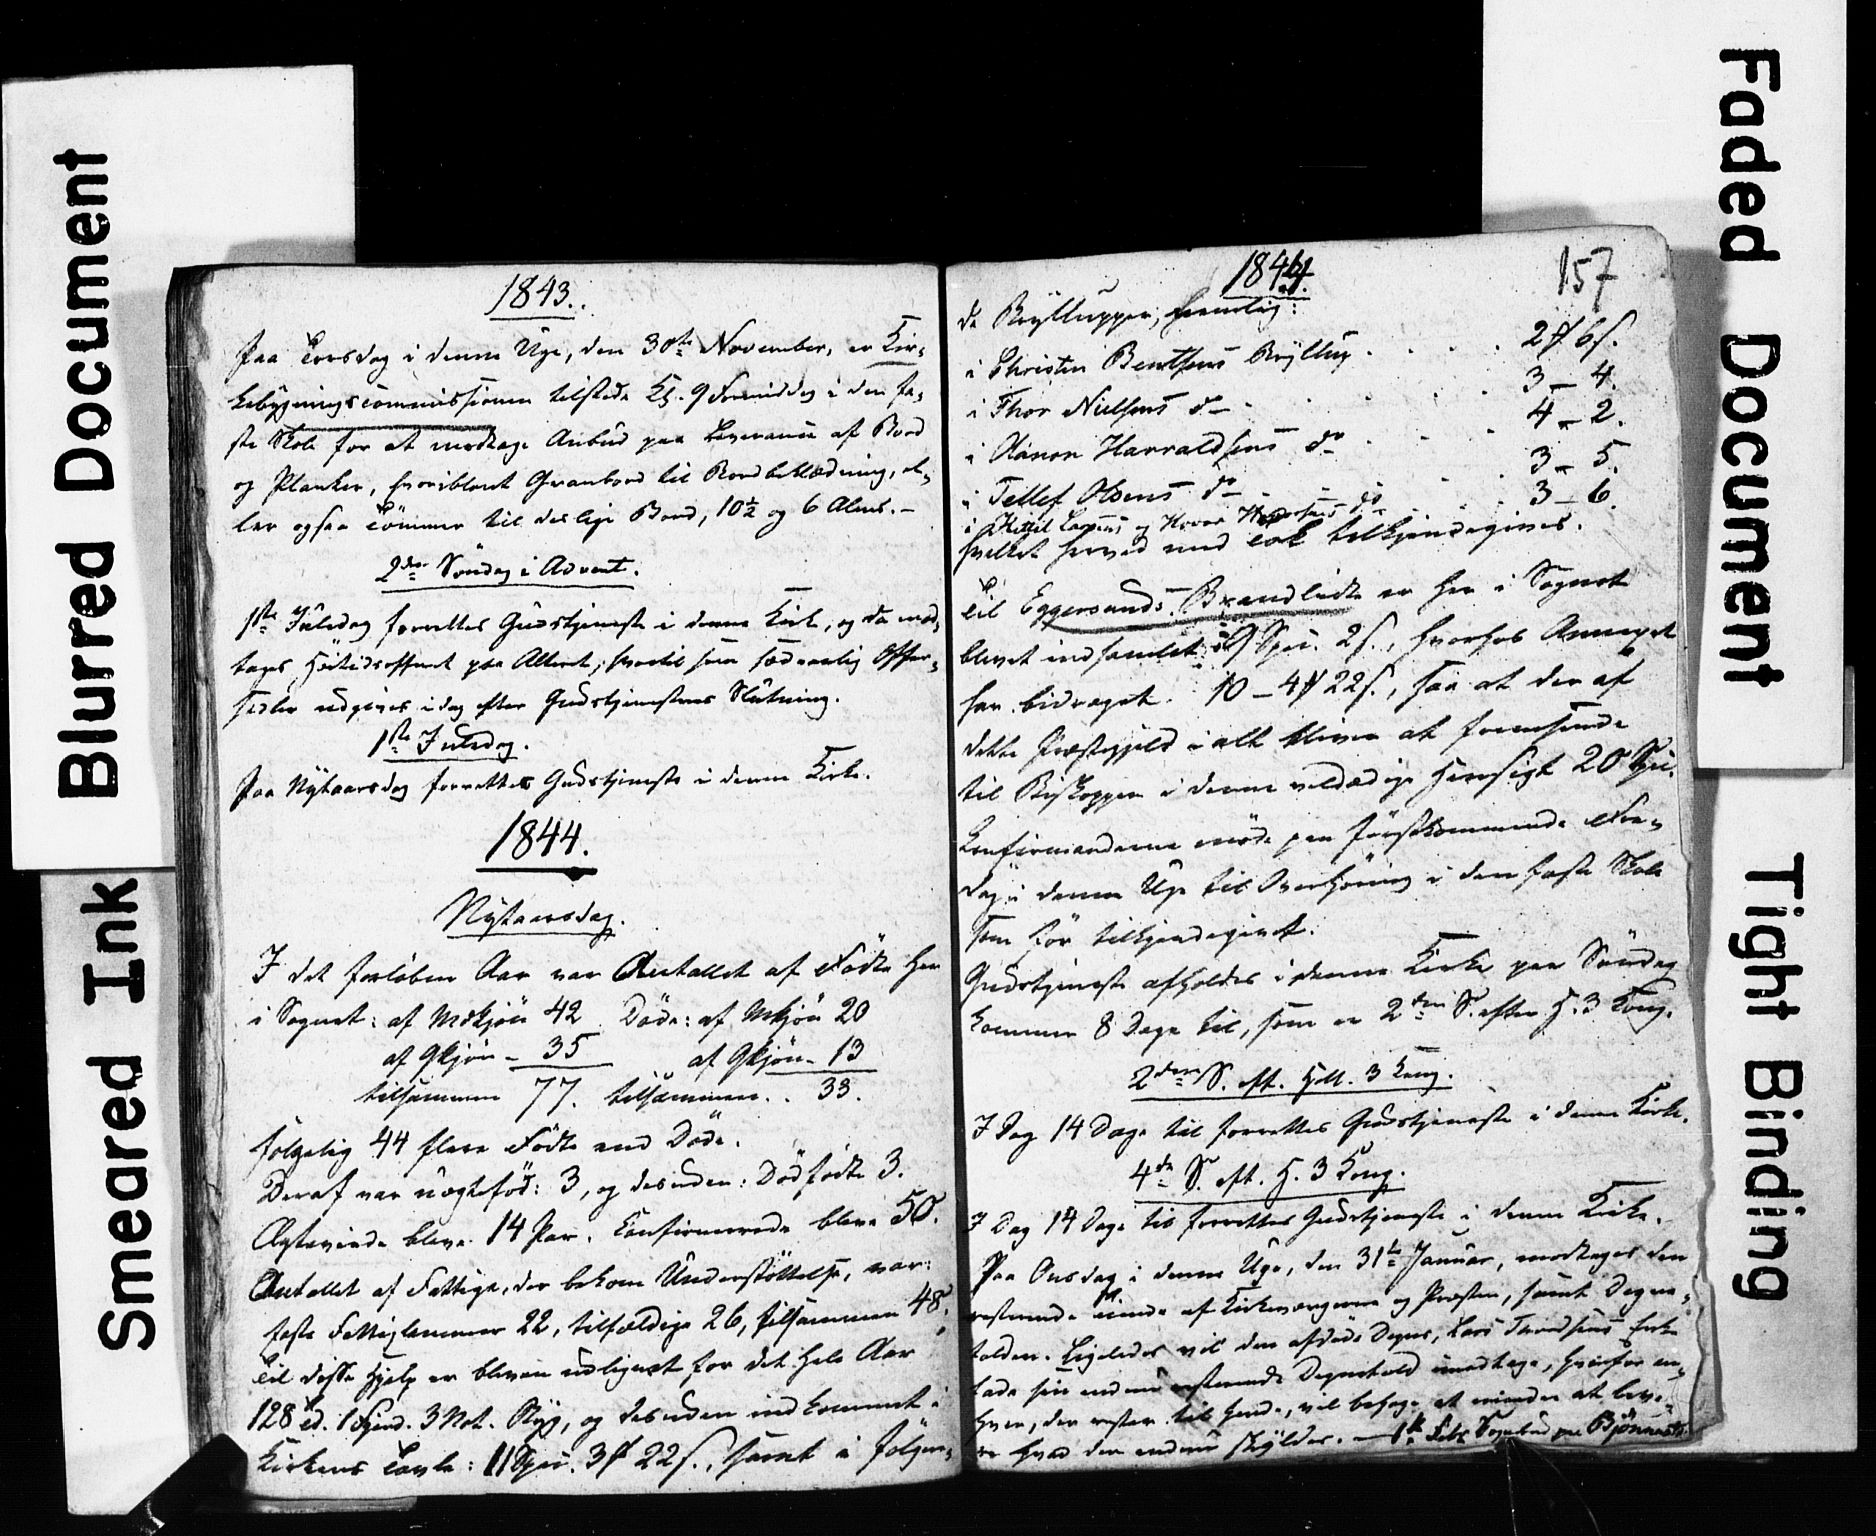 Blurred Document
Smeared Ink
Faded Document
Tight Binding
1843.
Paa Torsdag i denne Uge, den 30te November, er Kir-
kebygningscommissionen tilstede Kl. 9 Formiddag i den fa-
ste Skole for at modtage Anbud paa Leverance af Bord
og Planker, hvoriblandt Granbord til Bordbeklædning, el-
ler ogsaa Tømmer til deslige Bord, 10½ og 6 Alens.-
2den Søndag i Advent.
1ste Juledag forrettes Gudstjeneste i denne Kirke, og da mod-
tages Høitidsofferet paa Alteret, hvortil som sædvanlig Offer-
sedler udgives idag efter Gudstjenestens Slutning.
1ste Juledag.
Paa Nytaarsdag forrettes Gudstjeneste i denne Kirke.
1844.
Nytaarsdag.
I det forløbne Aar var Antallet af Fødte her
i Sognet: af Mdkjön 42 Døde: af Mkjön 20
af Qkjön - 35 af Qkjön - 13
tilsammen 77. tilsammen . . 33.
følgelig 44 flere Fødte end Døde.
Deraf var uægtefød: 3, og desuden: Dødfødte 3.
Ægteviede bleve 14 Par. Confirmerede bleve 50.
Antallet af Fattige, der bekom Understøttelse, var:
faste Fattiglemmer 22, tilfældige 26, tilsammen 48.
Til disse Hjelp er bleven udlignet for det hele Aar
128 Td. 1 Fjerd. 3 Not. Byg, og desuden indkommet i
Kirkens Tavle: 11 Spd. 3 ß 22 s., samt i følgen-
1844.
157
de Bryllupper, nemlig:
i Christen Bentsens Bryllup . . . . 2 ß 6 s.
i Thor Nielsens do - . . . . 3 - 4.
i Aanon Harraldsens do . . . 4 - 2.
i Tellef Olsens do - . . . 3 - 5.
i Kittil Larsens og Hover do . . 3 - 6.
hvilket herved med Tak tilkjendegives.
Til Eggersunds Brandlidte er her i Sognet
blevet indsamlet: 9 Spd. 2 s., hvorhos Annexet
har bidraget 10 - 4 ß 22 s., saa at der af
dette Præstegjeld i alt bliver at fremsende
til Biskoppen i denne veldædige Hensigt 20 Spd.
Confirmanderne møde paa førstkommende Fre-
dag i denne Uge til Overhøring i den faste Skole
som før tilkjendegivet.
Gudstjeneste afholdes i denne Kirke paa Søndag
kommer 8 Dage til, som er 2den S. efter H. 3 Kong.
2den S. eft. Hell. 3 Kong.
I Dag 14 Dage til forrettes Gudstjeneste i denne Kirke.
4de S. eft. H. 3 Kong.
I Dag 14 Dage til forrettes Gudstjeneste i denne Kirke.
Paa Onsdag i denne Uge, den 31te Januar, modtages den
resterende Tiende af Kirkeværgerne og Præsten, samt Degne-
tolden. Ligeledes vil den afdøde Degns, Lars Enke
lade sin endnu resterende Degnetold modtage, hvorfor en-
hver, der rester til hende, vil behage at erindre at leve-
re hvad der endnu skyldes. - 1te paa